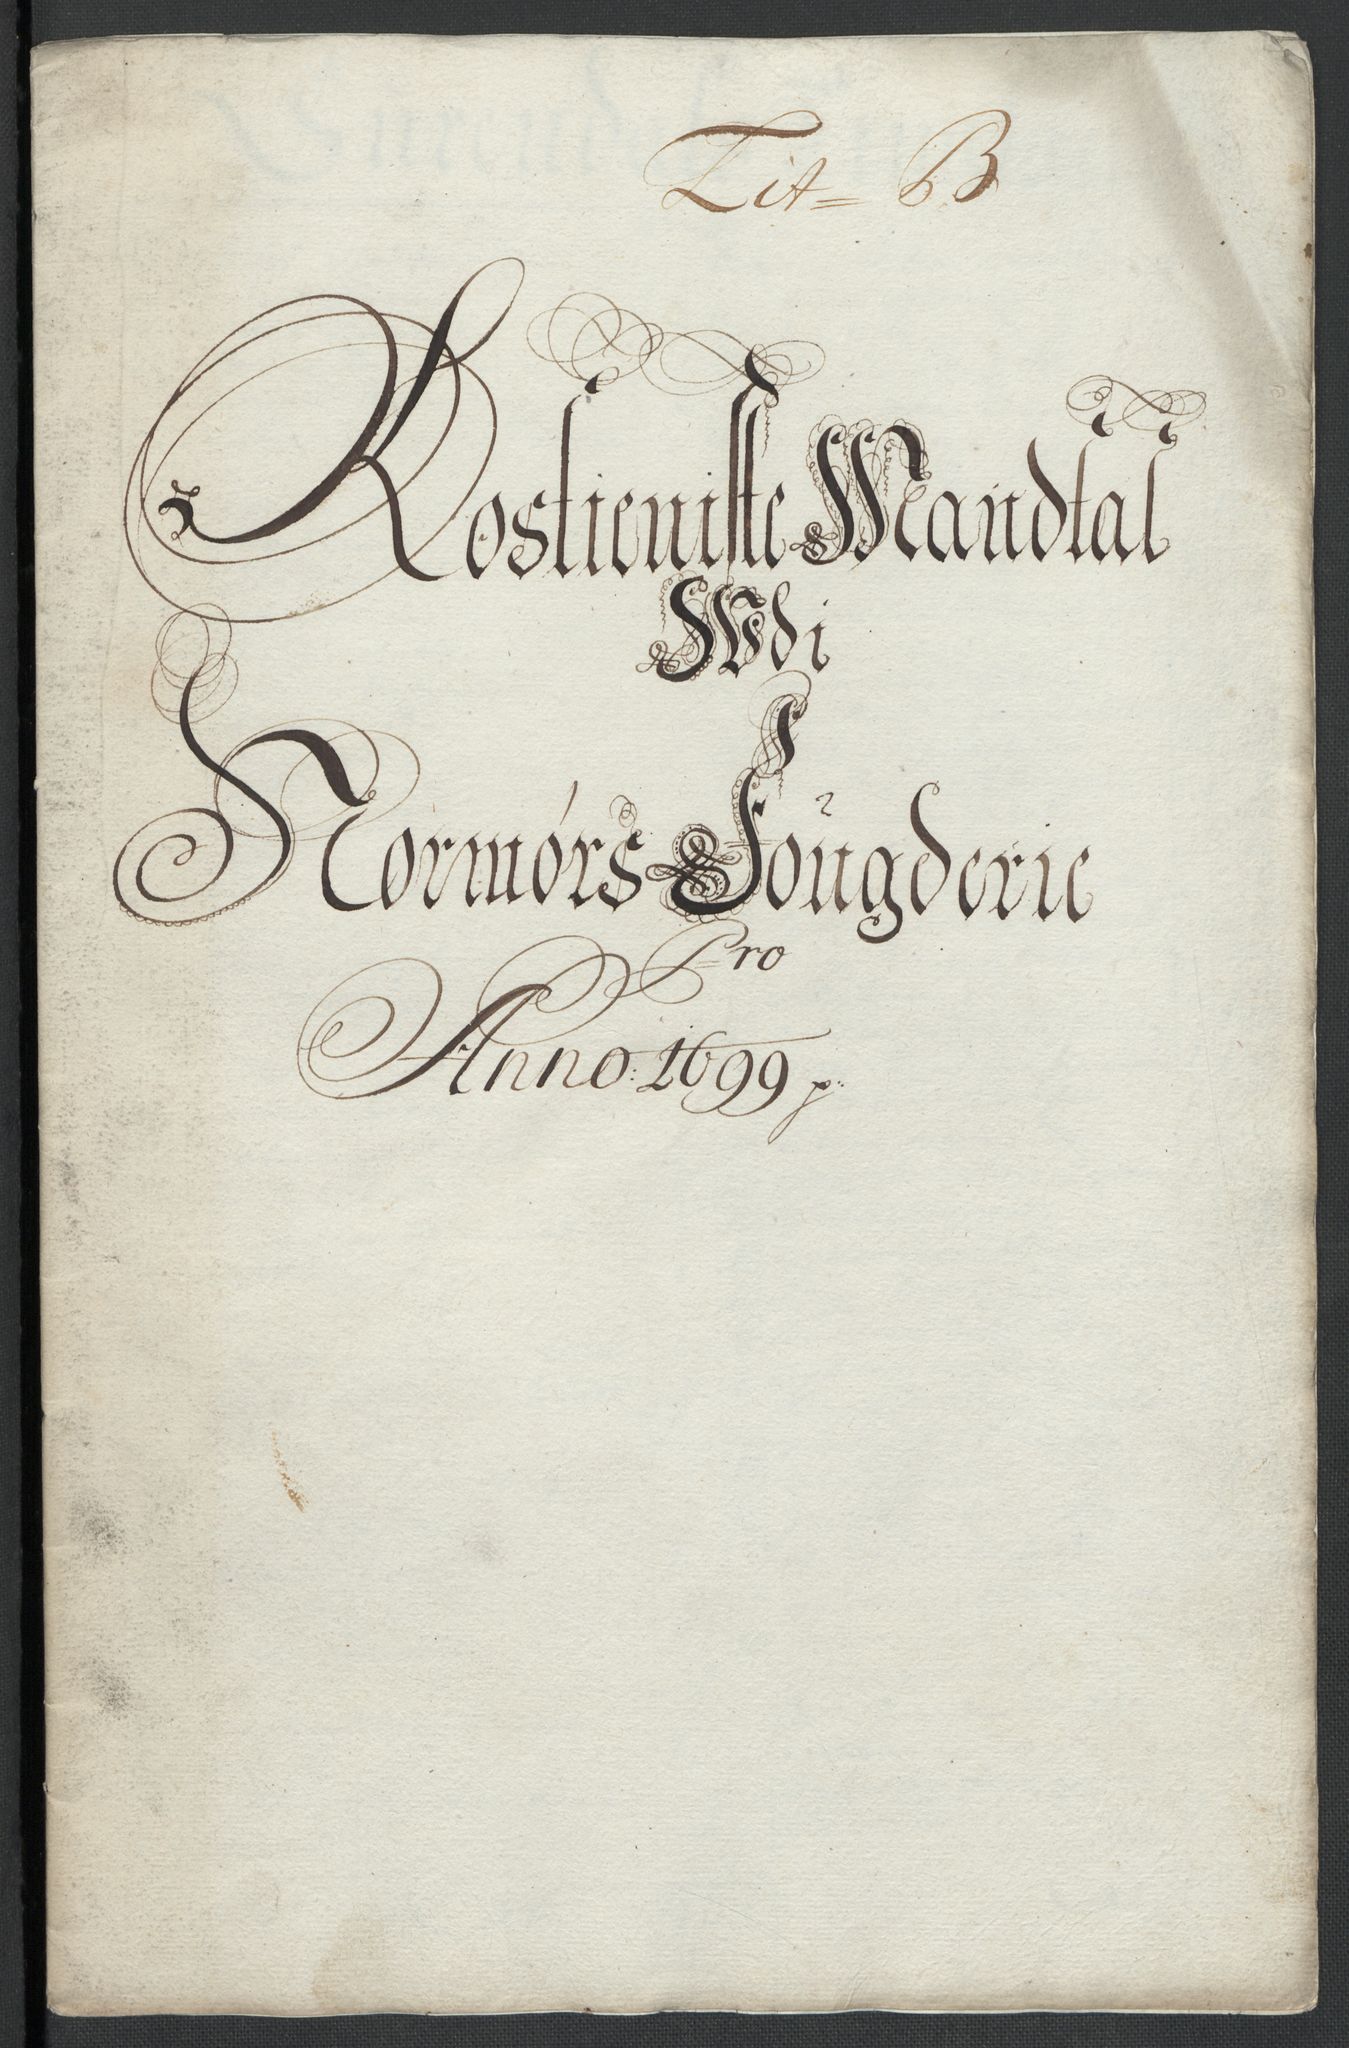 Lit= B
Rostieniste Mandtal
Wdi
Normørs Fougderie
Pro
Anno: 1699 p: